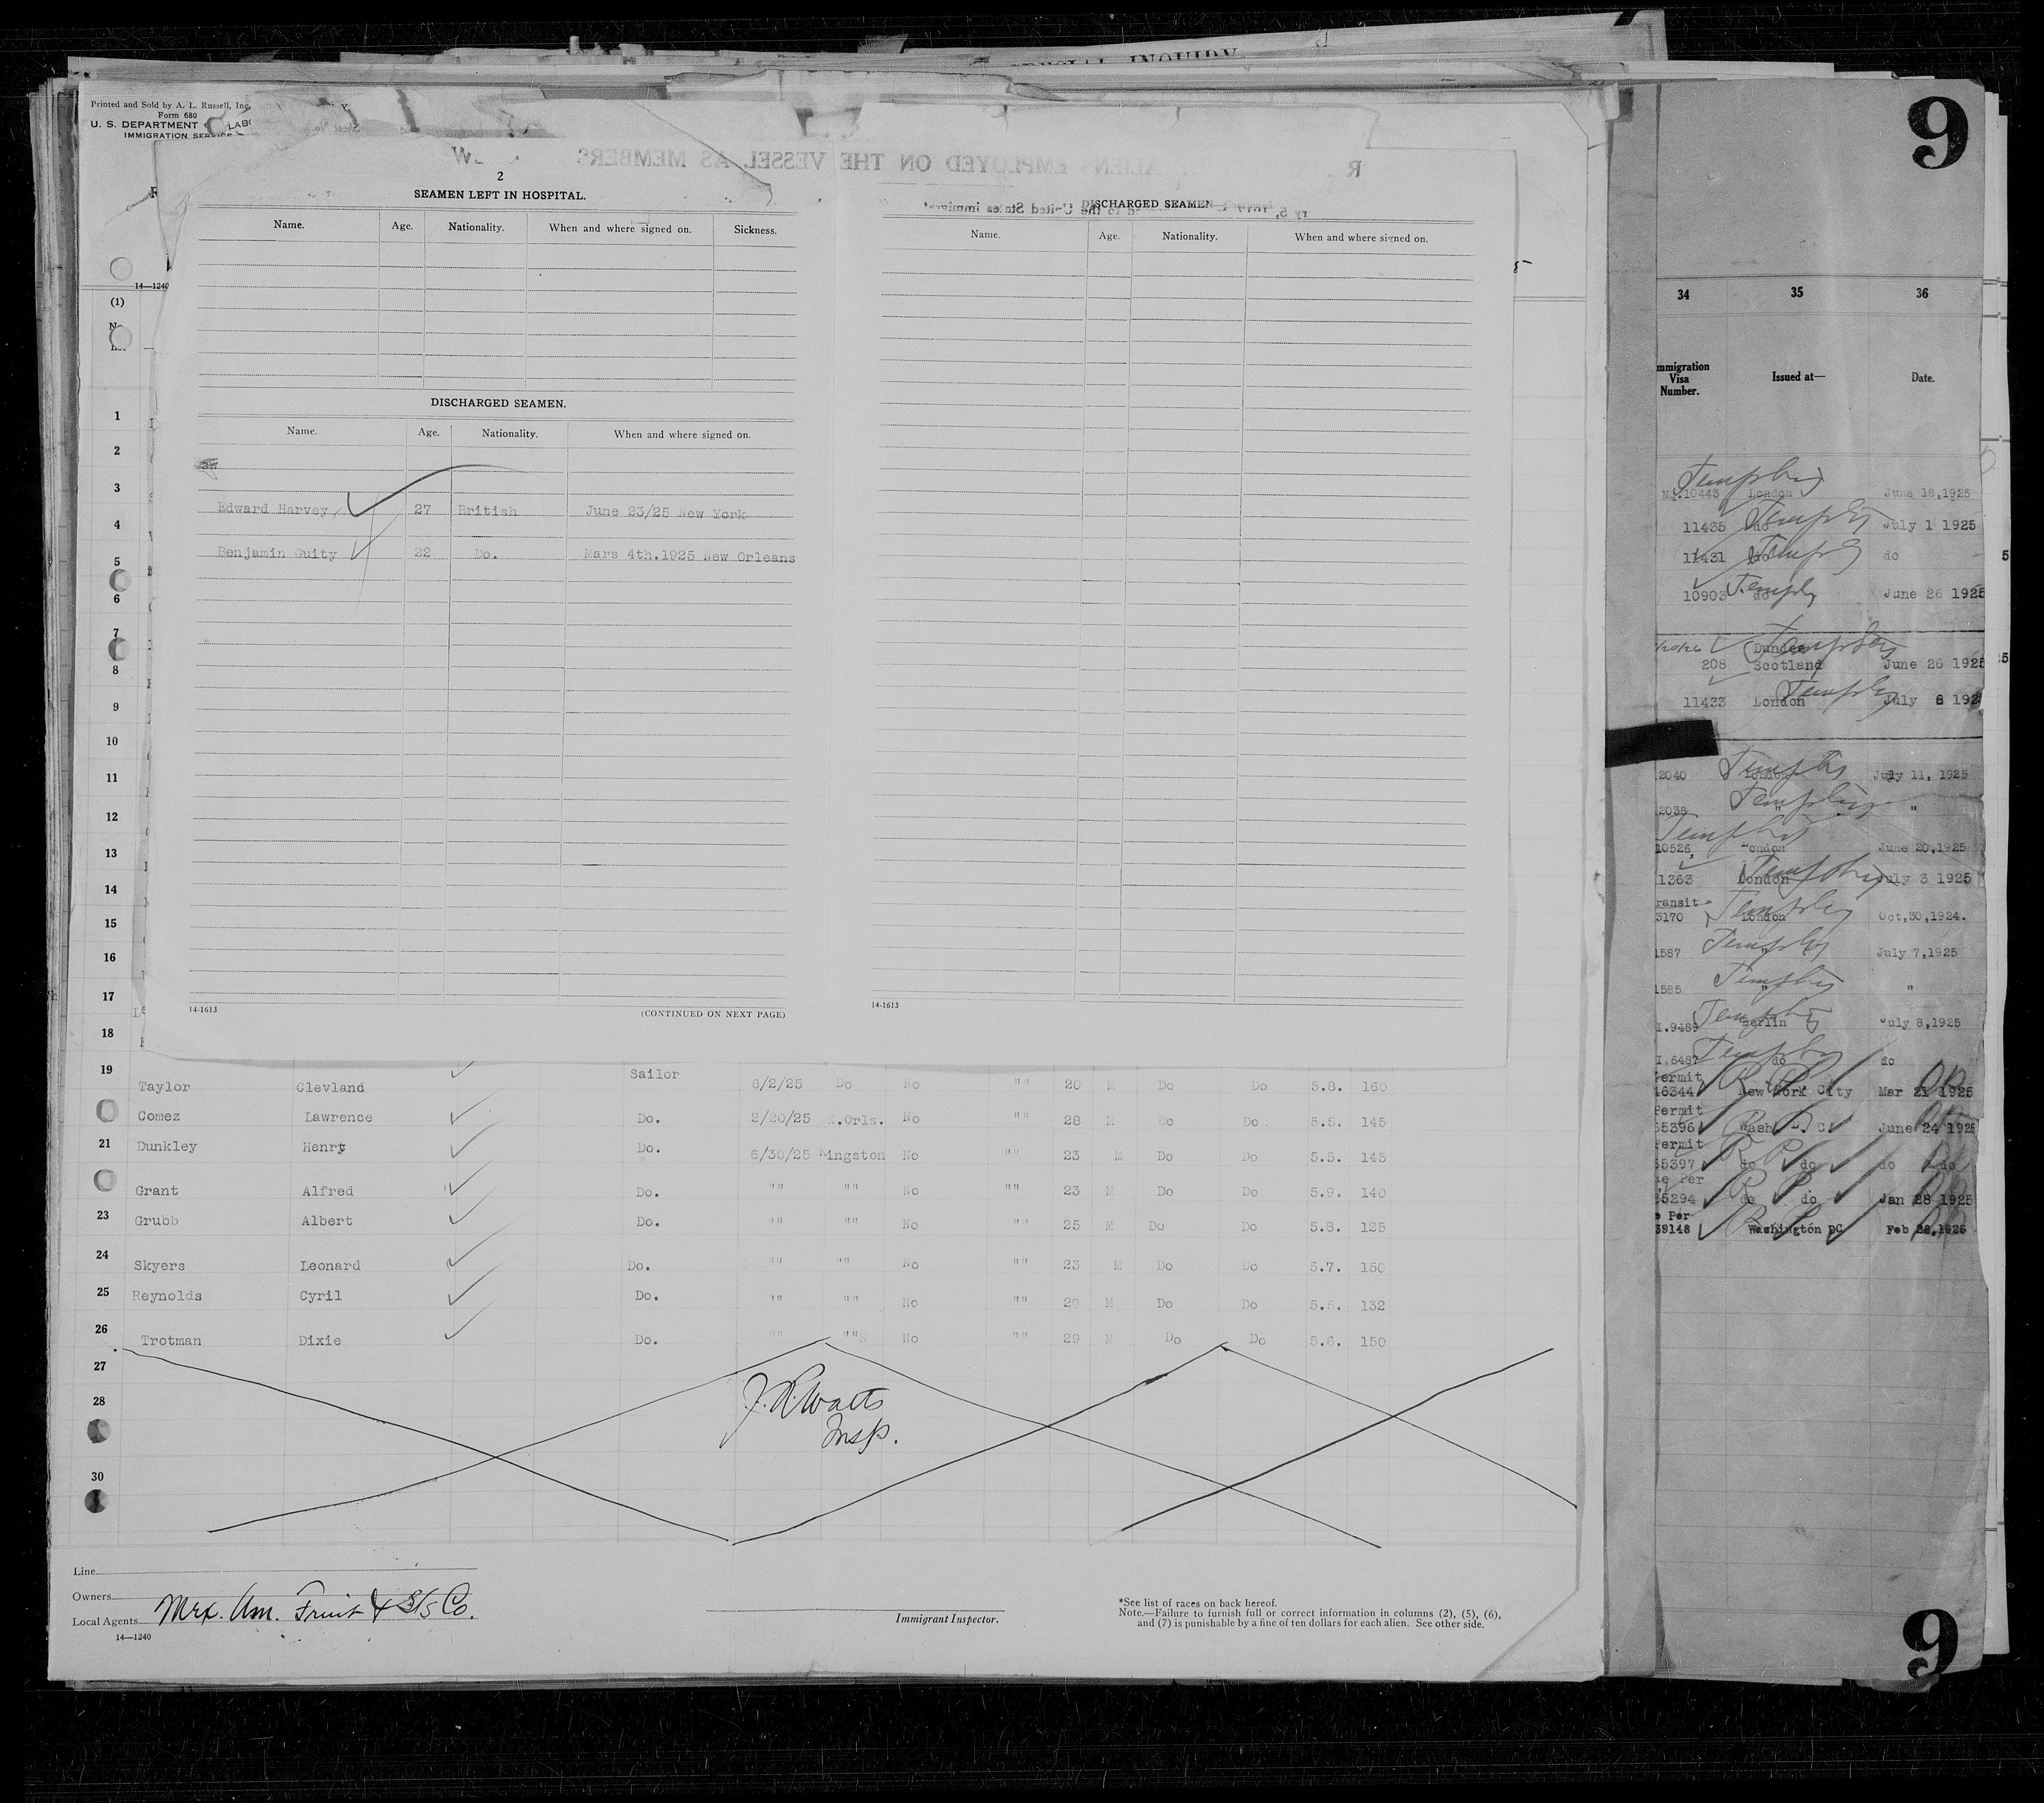 SPECIAL INQUIRY
Printed and Sold by A. L. Russell, Inc.
Form 680
U. S. DEPARTMENT LABO
IMMIGRATION SERVICE
9
2
SEAMEN LEFT IN HOSPITAL.
Name. Age. Nationality. When and where signed on. Sickness.
DISCHARGED SEAMEN.
Name. Age. Nationality. When and where signed on.
Edward Harvey 27 British June 23/25 New York
Benjamin Guity 22 Do. Mars 4th.1925 New Orleans
14-1613
(CONTINUED ON NEXT PAGE)
DISCHARGED SEAMEN
Name. Age. Nationality. When and where signed on.
14-1613
14—1240
(1)
1
2
3
4
5
6
7
8
9
10
11
12
13
14
15
16
17
18
19 Taylor Clevland Sailor 6/2/25 Do No "" 20 M Do Do 5.8. 160
Comez Lawrence Do. 2/20/25 N.Orls. No "" 28 M Do Do. 5.5. 145
21 Dunkley Henry Do. 6/30/25 Kingston No "" 23 M Do Do 5.5. 145
Grant Alfred Do. "" "" No "" 23 M Do Do 5.9. 140
23 Grubb Albert Do. "" "" No "" 25 M Do Do 5.8. 125
24 Skyers Leonard Do. "" "" No "" 23 M Do Do 5.7. 150
25 Reynolds Cyril Do. "" "" No "" 29 M Do Do 5.5. 132
26 Trotman Dixie Do. "" "" No "" 29 M Do Do 5.6. 150
27
28
30
J. R. Watts
Insp.
Line
Owners
Local Agents Mex. Am. Fruit & S/S Co.
14—1240
Immigrant Inspector.
*See list of races on back hereof.
Note.—Failure to furnish full or correct information in columns (2), (5), (6),
and (7) is punishable by a fine of ten dollars for each alien. See other side.
34 35 36
mmigration
Visa
Number.
Issued at—
Date.
10443 London June 18,1925
11435 do July 1 1925
11431 do do
10903 do June 26 1925
Dundee
208 Scotland June 26 1925
11433 London July 8 192
2040 London July 11, 1925
2038 " "
10526 London June 20,1925
1363 London July 3 1925
ransit
3170 London Oct,30,1924.
1587 " July 7,1925
1585 " "
I.9489 Berlin July 8,1925
I.6487 do do
Permit
16344 New York City Mar 21 1925
Permit
55396 Wash D. C. June 24 1925
Permit
55397 do do do do
e Per
55294 do do Jan 28 1925
e Per
39148 Washington DC Feb 28,1925
9